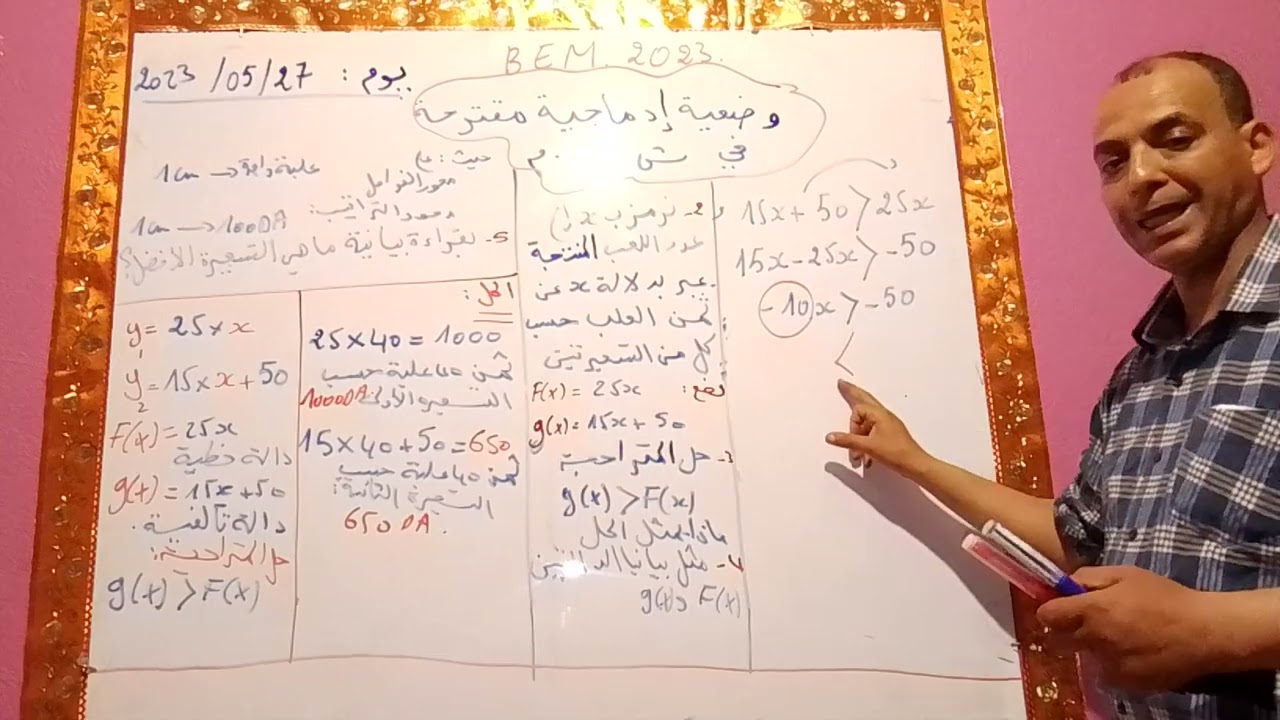 BEM. 2023.
يوم : 27/05/2023
وضعية إدماجية مقترحة
في ش م
حيث : على
محور الفواصل
1cm → علبة واحدة
ومحور التراتيب:
1cm → 100DA
5- بقراءة بيانية ماهي التسعيرة الأفضل؟
2- نرمز ب x لـ
عدد اللعب المنتجة
عبر بدلالة x عن
ثمن العلب حسب
كل من التسعيرتين
نضع:
F(x) = 25x
g(x) = 15x + 50
3- حل المتراجحة
g(x) > F(x)
ماذا يمثل الحل
4- مثل بيانيا الدالتين
F(x) و g(x)
الحل:
25×40 = 1000
ثمن 40 علبة حسب
التسعيرة الأولى 1000DA
15×40+50=650
ثمن 40 علبة حسب
التسعيرة الثانية:
650 DA.
y₁ = 25×x
y₂ = 15×x+50
F(x) = 25x
دالة خطية
g(x) = 15x+50
دالة تآلفية.
حل المتراجحة:
g(x) > F(x)
15x + 50 > 25x
15x - 25x > -50
-10x > -50
<